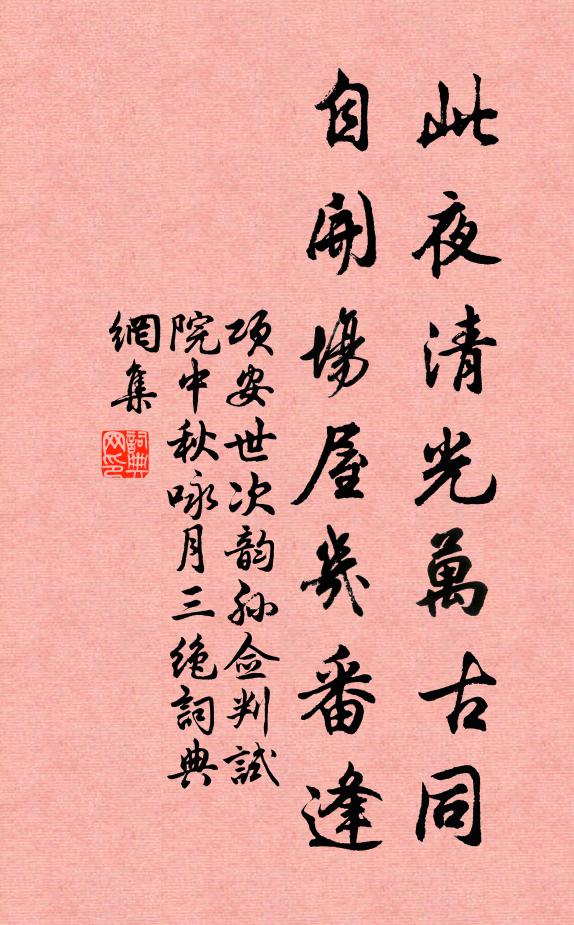 此夜清光萬古同
自開場屋幾番逢
項安世次韵孙佥判試
院中秋咏月三绝詞典
網集
詞典
网印